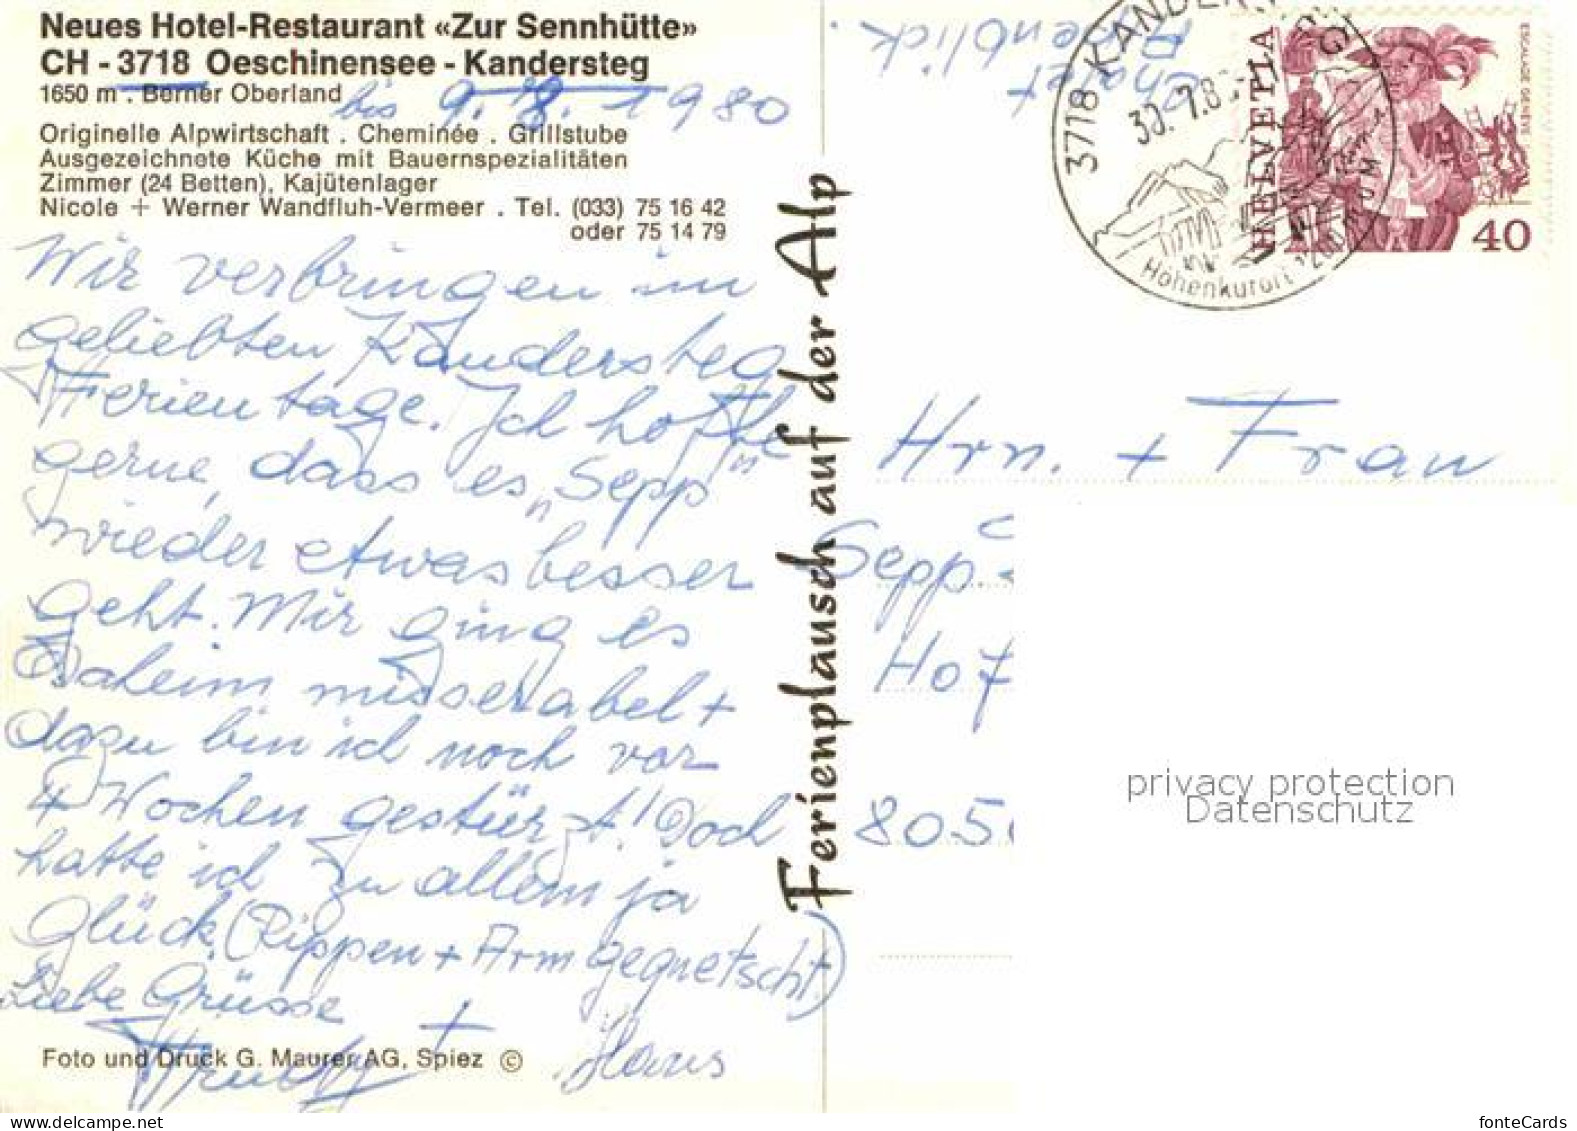 Neues Hotel-Restaurant «Zur Sennhütte»
CH - 3718 Oeschinensee - Kandersteg
1650 m . Berner Oberland
bis 9. 8. 1980
Originelle Alpwirtschaft . Cheminée . Grillstube
Ausgezeichnete Küche mit Bauernspezialitäten
Zimmer (24 Betten), Kajütenlager
Nicole + Werner Wandfluh-Vermeer . Tel. (033) 75 16 42
oder 75 14 79
Wir verbringen im
geliebten Kandersteg
Ferientage. Ich hoffe
gerne, dass es „Sepp"
wieder etwas besser
geht. Mir ging es
Daheim misserabel +
dazu bin ich noch vor
4 Wochen gestürzt! Doch
hatte ich zu allem ja
Glück. (Rippen + Arm gequetscht)
Liebe Grüsse
+ Hans
Foto und Druck G. Maurer AG, Spiez ©
Ferienplausch auf der Alp
Chalet
3718 KANDER
30. 7. 8
Höhenkurort 1200 m ü M
HELVETIA
ESCALADE GENÈVE
40
Hrn. + Frau
Sepp
Hof
805
privacy protection
Datenschutz
fonteCards